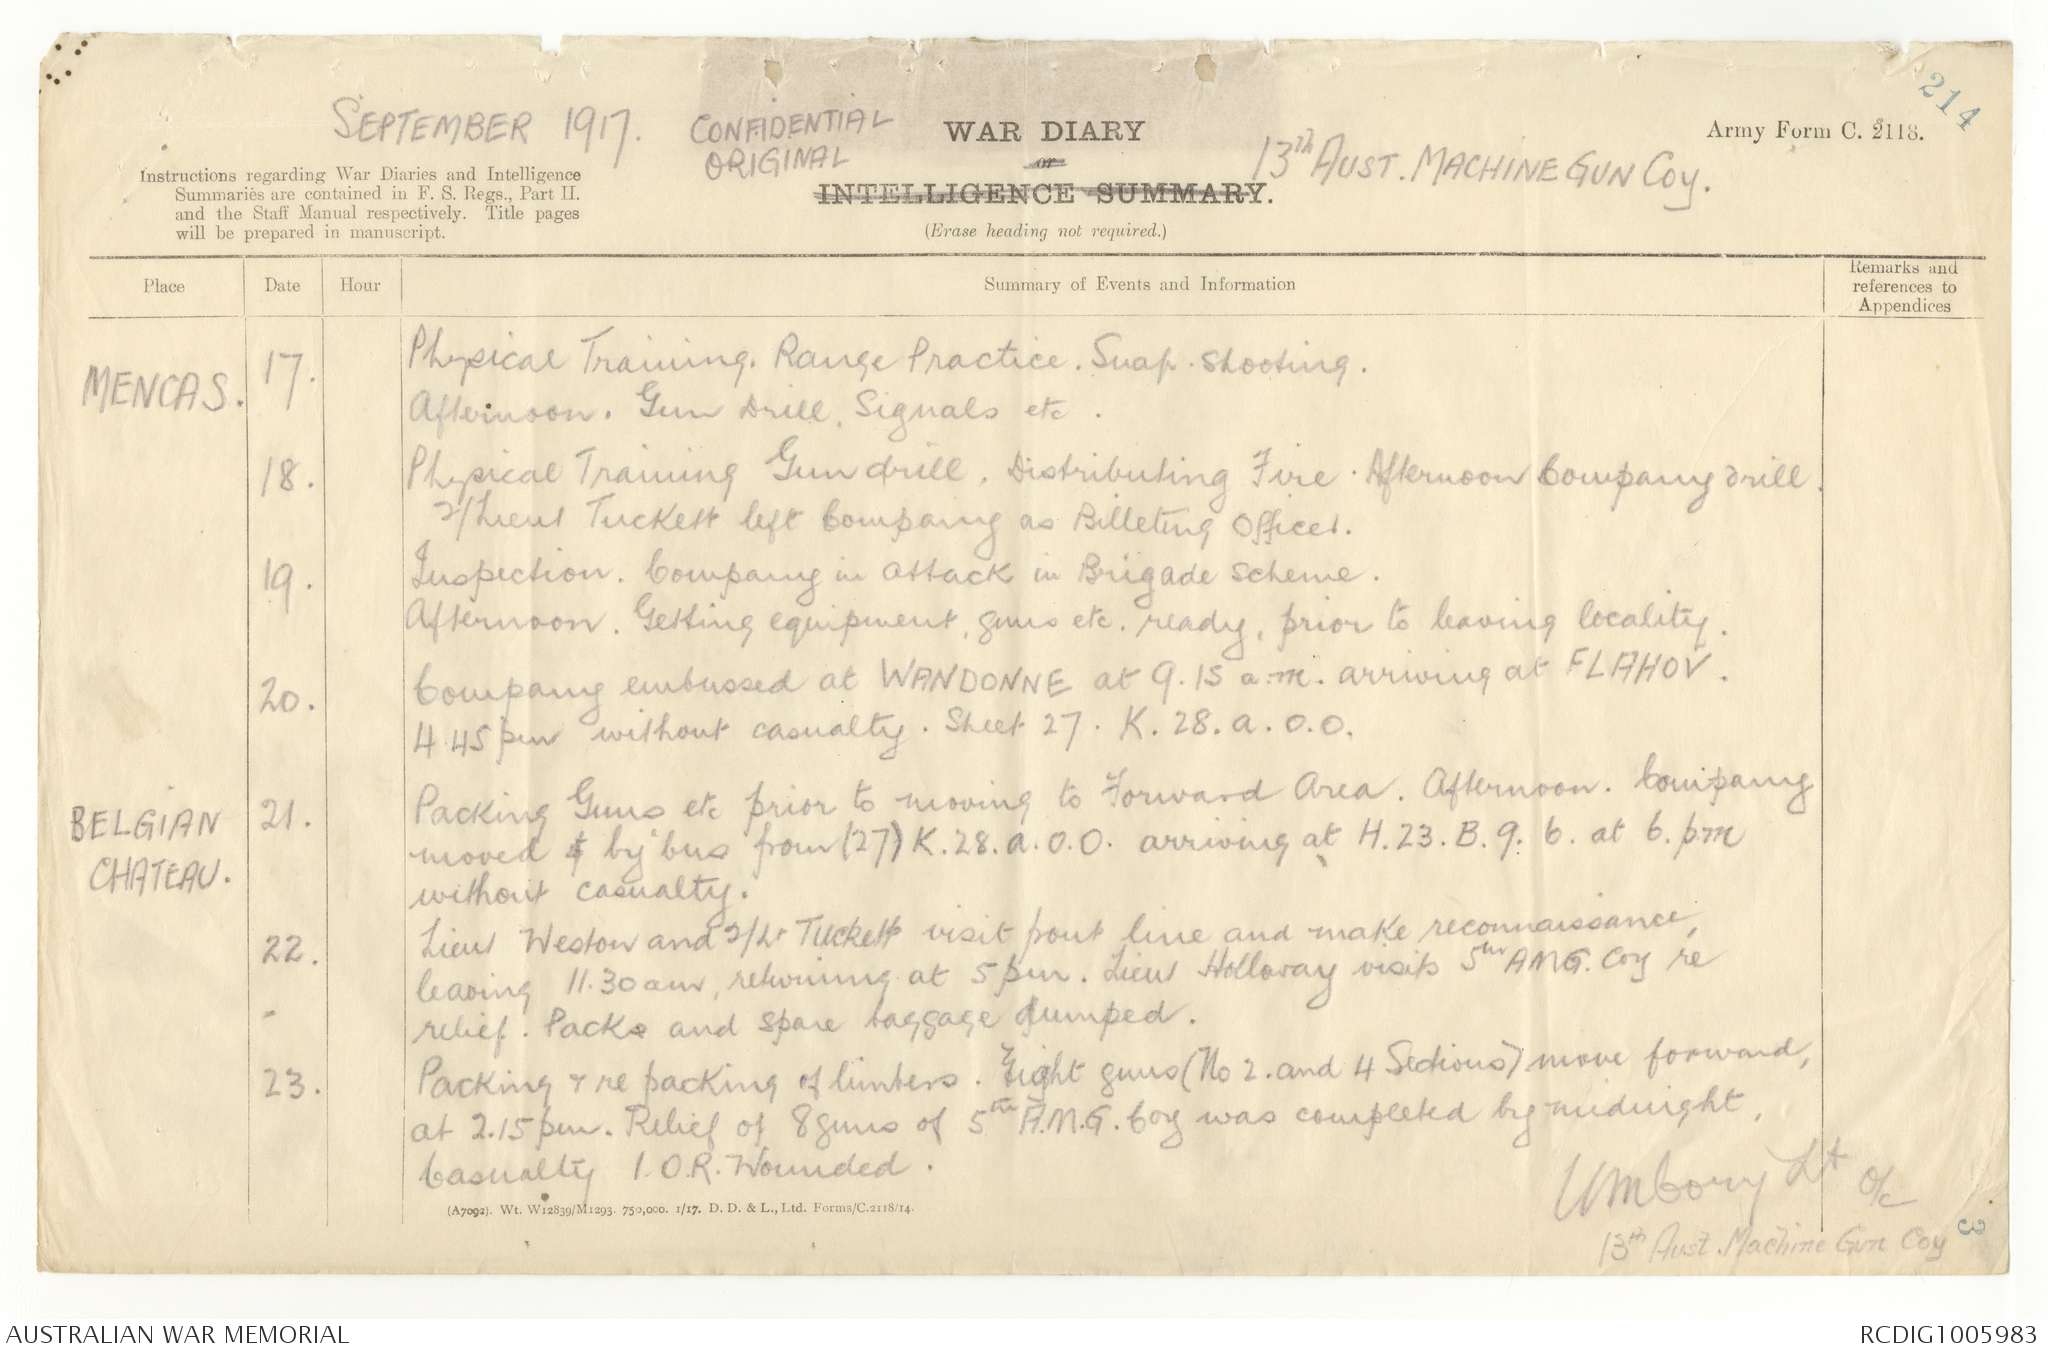 214
SEPTEMBER 1917.
CONFIDENTIAL
ORIGINAL
WAR DIARY
or
INTELLIGENCE SUMMARY.
(Erase heading not required.)
13th AUST. MACHINE GUN COY.
Army Form C. 2118.
Instructions regarding War Diaries and Intelligence
Summaries are contained in F. S. Regs., Part II.
and the Staff Manual respectively. Title pages
will be prepared in manuscript.
Place Date Hour Summary of Events and Information Remarks and references to Appendices
MENCAS. 17. Physical Training. Range Practice. Snap. shooting.
Afternoon. Gun Drill, Signals etc.
18. Physical Training Gun drill. Distributing Fire. Afternoon Company drill.
2/Lieut Tuckett left Company as Billeting Officer.
19. Inspection. Company in attack in Brigade scheme.
Afternoon. Getting equipment, guns etc. ready, prior to leaving locality.
20. Company embussed at WANDONNE at 9.15 a.m. arriving at FLAHOV.
4.45 pm without casualty. Sheet 27. K. 28. a. 0.0.
BELGIAN CHATEAU. 21. Packing Guns etc prior to moving to Forward Area. Afternoon. Company
moved by bus from (27) K. 28. a. 0.0. arriving at H. 23. B. 9. 6. at 6. pm
without casualty.
22. Lieut Weston and 2/Lt Tuckett visit front line and make reconnaissance,
leaving 11.30 am, returning at 5 pm. Lieut Holloway visits 5th A.M.G. Coy re
relief. Packs and spare baggage dumped.
23. Packing & re packing of limbers. Eight guns (No 2. and 4 Sections) move forward,
at 2.15 pm. Relief of 8 guns of 5th A.M.G. Coy was completed by midnight,
Casualty 1. O.R. Wounded.
(A7092). Wt. W12839/M1293. 750,000. 1/17. D. D. & L., Ltd. Forms/C.2118/14.
Lt O/c
13th Aust. Machine Gun Coy
3
AUSTRALIAN WAR MEMORIAL
RCDIG1005983